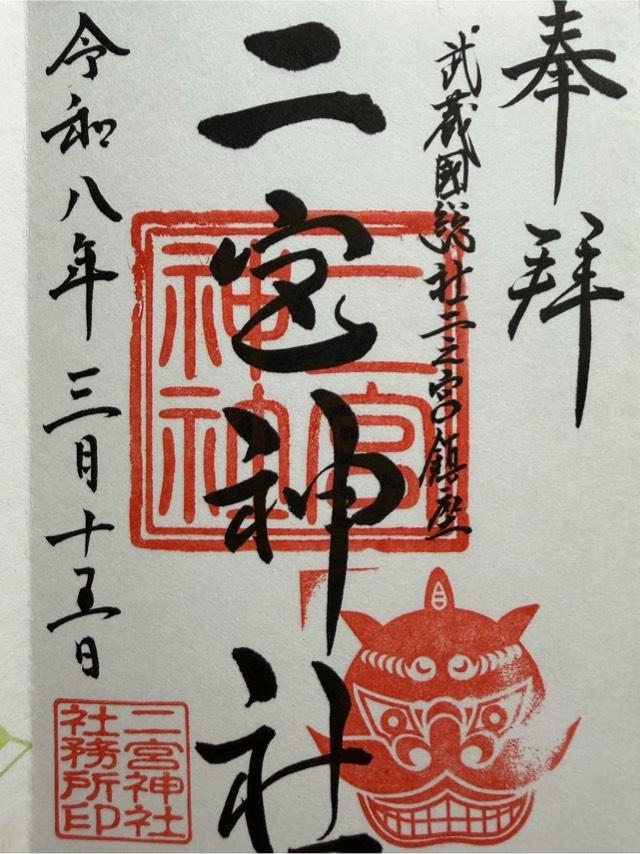 奉拝
武蔵國総社二之宮鎮座
二宮神社
令和八年三月十五日
二宮
神社
二宮神社
社務所印